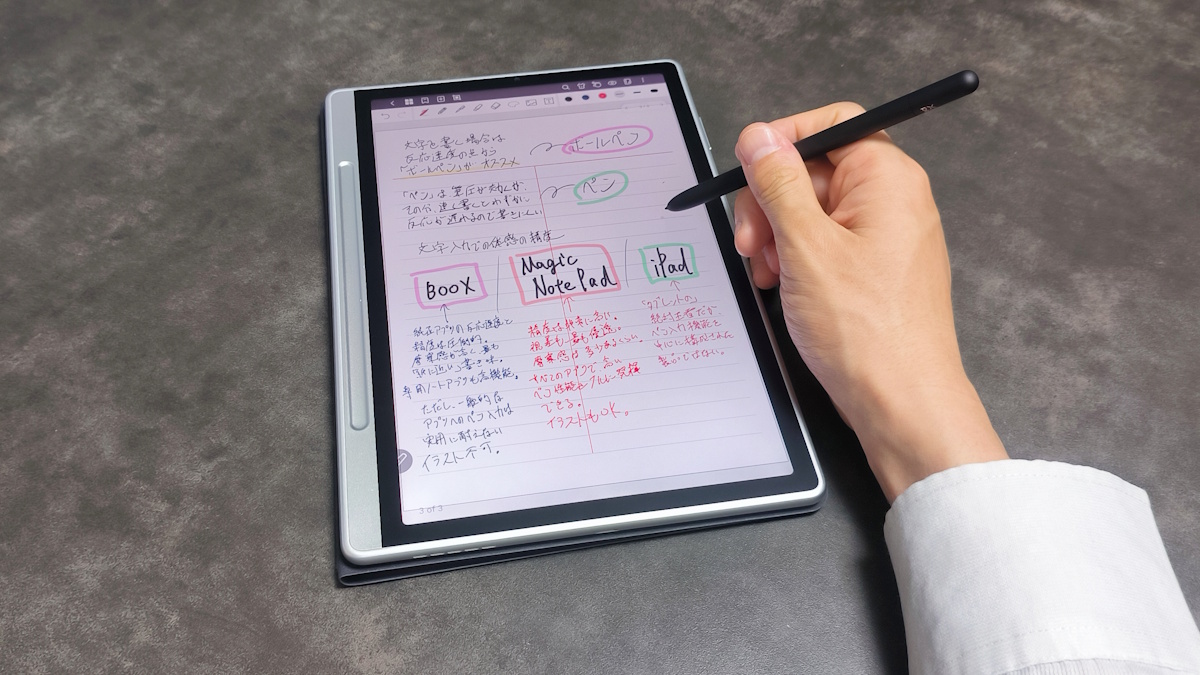 文字を書く場合は
反応速度の点から
「ボールペン」がオススメ
ボールペン
「ペン」は筆圧が効くが、
その分、速く書くとわずかに
反応が遅れるので書きにくい
ペン
文字入力での体感の精度
BOOX
Magic
Note Pad
iPad
純正アプリの反応速度と
精度は圧倒的。
摩擦感が高く最も
「紙に近い」書き味。
専用ノートアプリも高機能。
ただし、一般的な
アプリへのペン入力は
実用に耐えない
イラスト不可。
精度は非常に高い。
視差も最も優秀。
摩擦感は
すべてのアプリで高い
ペン性能をフルに発揮
できる。
イラストもOK。
「タブレットの」
絶対王者だが
ペン入力機能を
中心に構成された
製品ではない。
3 of 3